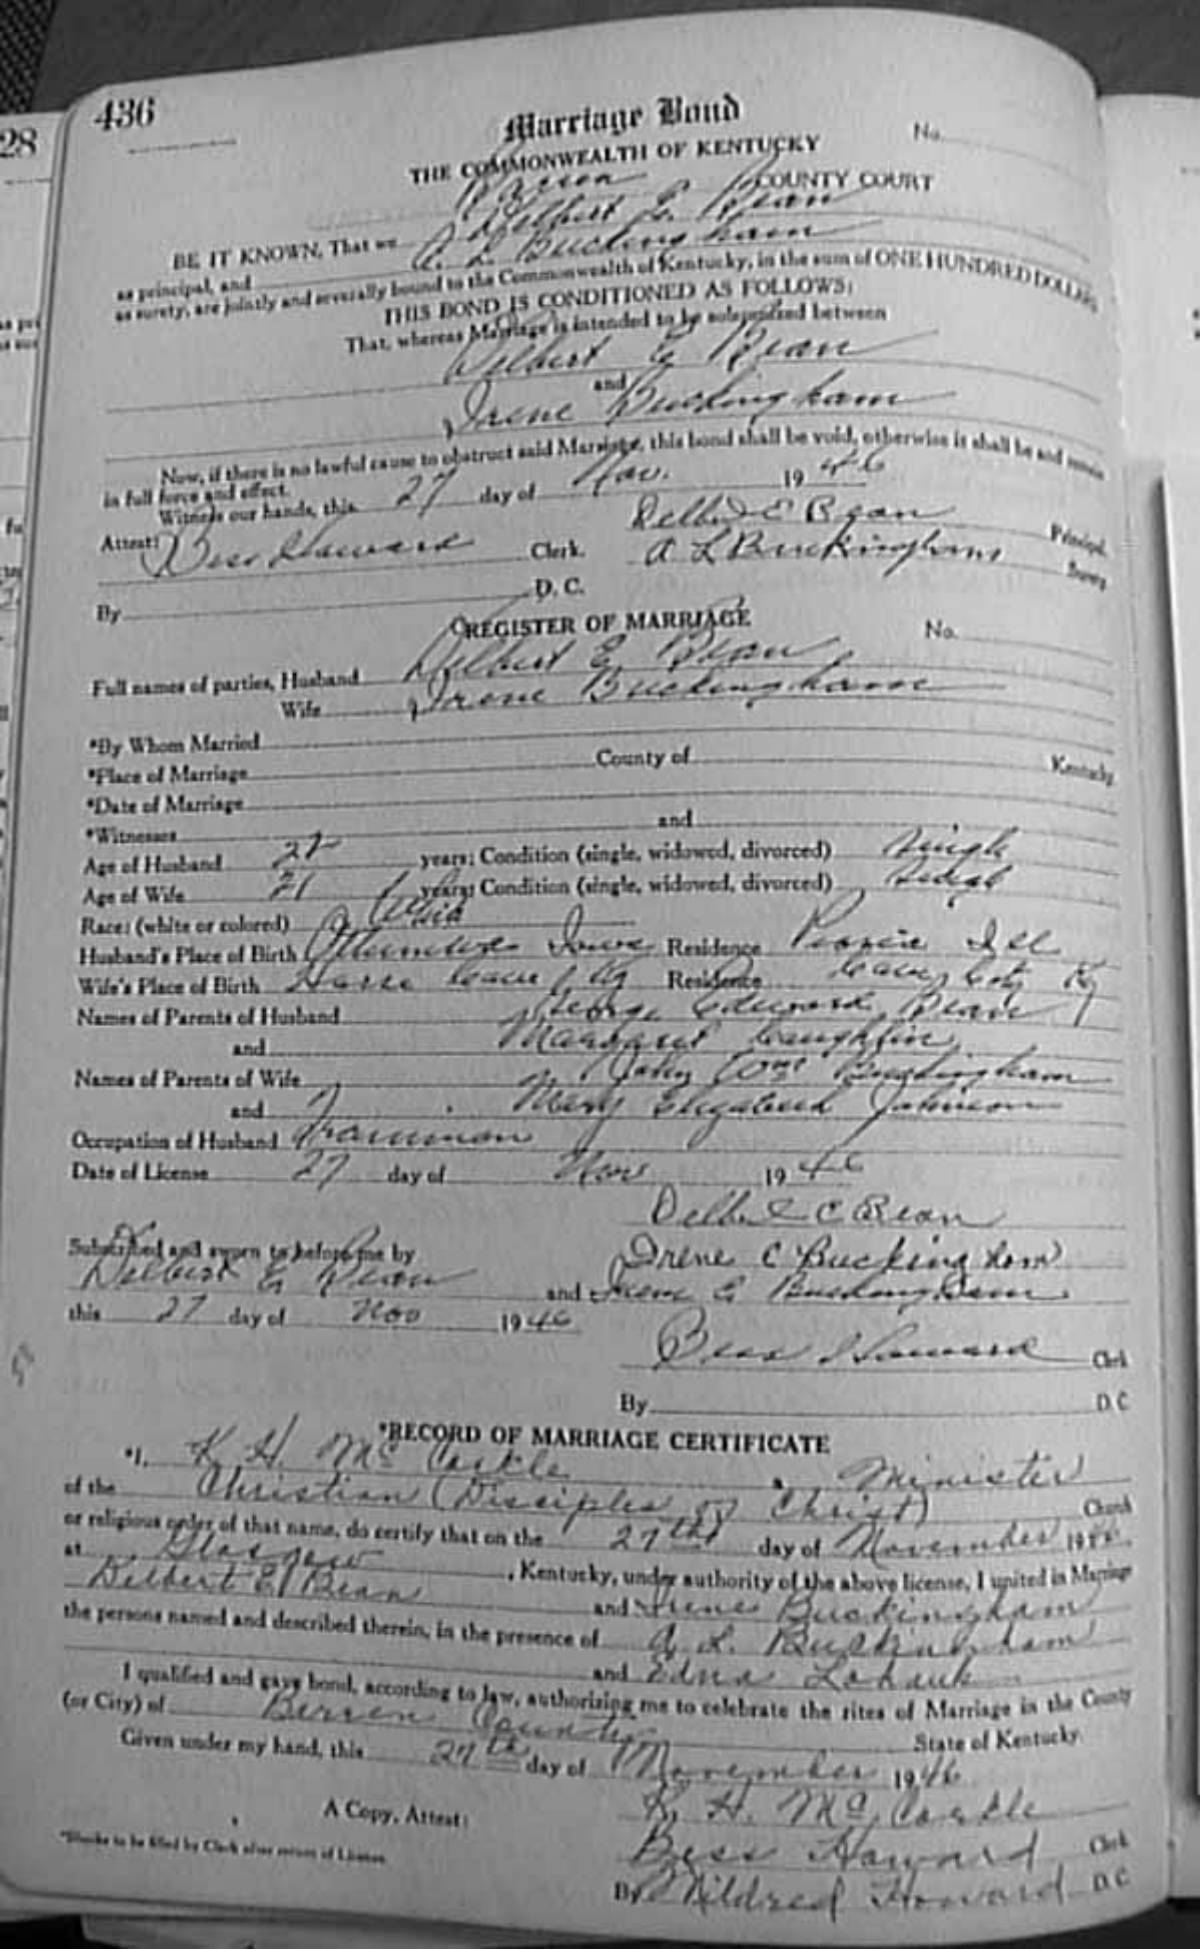 28
436
Marriage Bond
No.
THE COMMONWEALTH OF KENTUCKY
Barren COUNTY COURT
BE IT KNOWN, That we Delbert E. Bean
as principal, and A. L. Buckingham
as surety, are jointly and severally bound to the Commonwealth of Kentucky, in the sum of ONE HUNDRED DOLLARS
THIS BOND IS CONDITIONED AS FOLLOWS:
That, whereas Marriage is intended to be solemnized between
Delbert E Bean
and
Irene Buckingham
Now, if there is no lawful cause to obstruct said Marriage, this bond shall be void, otherwise it shall be and remain
in full force and effect.
Witness our hands, this 27 day of Nov. 1946
Delbert E Bean Principal.
Attest: Bess Howard Clerk. A L Buckingham Surety
By D. C.
REGISTER OF MARRIAGE
No.
Full names of parties, Husband Delbert E. Bean
Wife Irene Buckingham
*By Whom Married
*Place of Marriage County of Kentucky
*Date of Marriage
*Witnesses and
Age of Husband years; Condition (single, widowed, divorced) Single
Age of Wife 21 years; Condition (single, widowed, divorced) Single
Race: (white or colored) White
Husband's Place of Birth Ottumwa Iowa Residence Peoria Ill
Wife's Place of Birth Horse Cave, Ky Residence Cave City Ky
Names of Parents of Husband George Edward Bean
and Margaret Caughlin
Names of Parents of Wife John Wm Buckingham
and Mary Elizabeth Johnson
Occupation of Husband Trainman
Date of License 27 day of Nov 1946
Delbert E Bean
Subscribed and sworn to before me by Irene C Buckingham
Delbert E Bean and Irene C Buckingham
this 27 day of Nov 1946
Bess Howard Clerk
By D. C
*RECORD OF MARRIAGE CERTIFICATE
*I, K. H. McCorkle a Minister
of the Christian (Disciples of Christ) Church
or religious order of that name, do certify that on the 27th day of November 1946
at Glasgow, Kentucky, under authority of the above license, I united in Marriage
Delbert E. Bean and Irene Buckingham
the persons named and described therein, in the presence of A. L. Buckingham
and Edna
I qualified and gave bond, according to law, authorizing me to celebrate the rites of Marriage in the County
(or City) of Barren County State of Kentucky.
Given under my hand, this 27th day of November 1946
K. H. McCorkle
A Copy, Attest: Bess Howard Clerk
*Blanks to be filled by Clerk after return of License
By Mildred Howard D. C